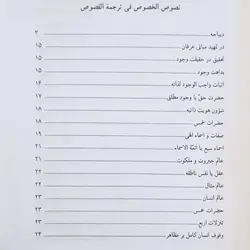 نصوص الخصوص فی ترجمة الفصوص
دیباجه ۳
در تمهید مبانی عرفان ۱۵
تحقیق در حقیقت وجود ۱۵
بداهت وجود ۱۵
اثبات واجب الوجود لذاته ۱۶
حضرت حقّ یا وجود مطلق ۱۷
شؤون هویت ذاتیه ۱۷
حضرات خمس ۱۸
صفات و اسماء الهی ۱۹
اسماء سبع یا ائمّة الاسماء ۲۱
عالم جبروت و ملکوت ۲۱
عقل یا نفس ناطقه ۲۱
عالم مثال ۲۲
عالم انسان ۲۳
حضرات خمس ۲۳
تنزلات اربع ۲۳
وقوف انسان کامل بر مظاهر ۲۴